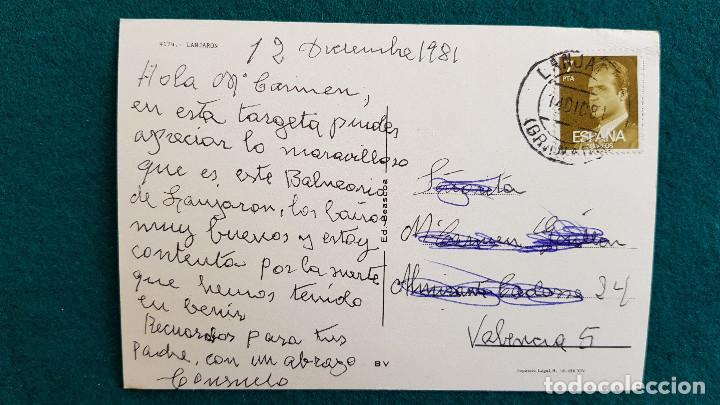 4179.- LANJARON
12 Diciembre 1981
Hola Mª Carmen,
en esta targeta puedes
apreciar lo maravilloso
que es, este Balneario
de Lanjaron, los baños
muy buenos y estoy
contenta por la suerte
que hemos tenido
en benir
Recuerdos para tus
padre, con un abrazo
Consuelo
Ed. Beascoa
BV
LANJA
14 DIC 81
(GRANA
PTA
ESPAÑA
CORREOS
Señorita
Mª Carmen
24
Valencia 5
Depósito Legal, B.
todocoleccion